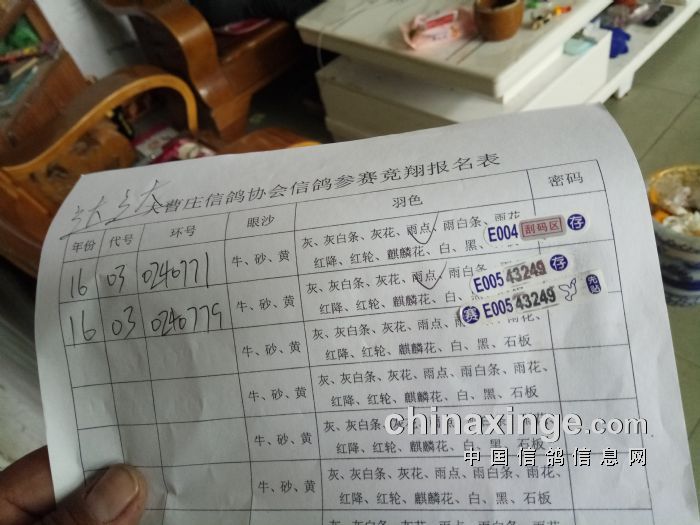 大曹庄信鸽协会信鸽参赛竞翔报名表
年份 代号 环号 眼沙 羽色 密码
16 03 0240771 牛、砂、黄 灰、灰白条、灰花、雨点、雨白条、雨花、
红降、红轮、麒麟花、白、黑、
E004 刮码区 存
16 03 0240779 牛、砂、黄 灰、灰白条、灰花、雨点、雨白
红降、红轮、麒麟花、白、
E005 43249 存
赛 E005 43249
牛、砂、黄 灰、灰白条、灰花、雨点、
红降、红轮、麒麟花、白、黑、石板
牛、砂、黄 灰、灰白条、灰花、雨点、雨白条、雨花、
红降、红轮、麒麟花、白、黑、石板
牛、砂、黄 灰、灰白条、灰花、雨点、雨白条、雨花、
红降、红轮、麒麟花、白、黑、石板
牛、砂、黄 灰、灰白条、灰花、雨点、雨白条、雨花、
红降、红轮、麒麟花、白、黑、石板
灰、灰白条、灰花、雨点、雨白条、雨花、
chinaxinge.com
中国信鸽信息网